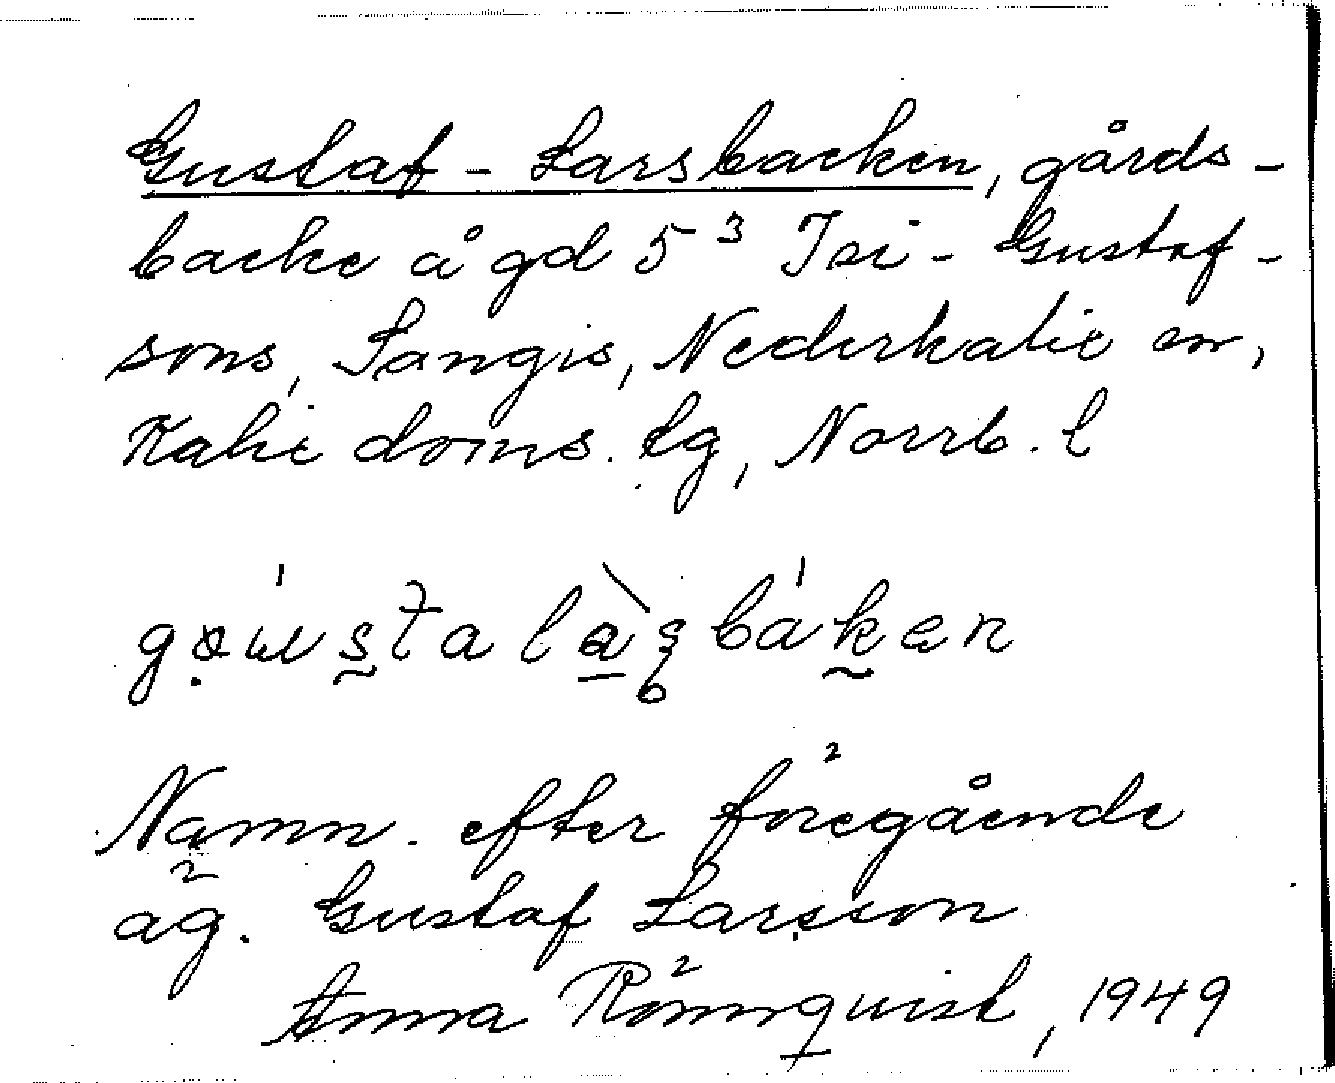 Gustaf-Larsbacken, gårds-
backe å gd 5³ Isi-Gustaf-
sons, Sangis, Nederkalix sn,
Kalix doms. lg, Norrb. l
Namn. efter föregående
äg. Gustaf Larsson
Anna Rönnquist, 1949